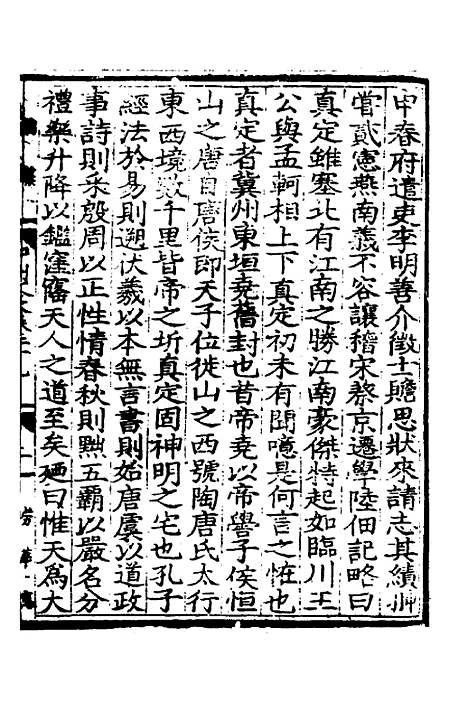 甲春府遣吏李明善介徵士贍思狀來請志其績岫
嘗貳憲燕南義不容讓稽宋蔡京遷學陸佃記略曰
真定雖塞北有江南之勝江南豪傑特起如臨川王
公與孟軻相上下真定初未有聞噫是何言之恠也
真定者冀州東垣堯舊封也昔帝堯以帝嚳子侯恒
山之唐自唐侯即天子位徙山之西號陶唐氏太行
東西境數千里皆帝之圻真定固神明之宅也孔子
經法於易則遡伏羲以本無言書則始唐虞以道政
事詩則采殷周以正性情春秋則黜五霸以嚴名分
禮樂升降以鑑窪窿天人之道至矣廼曰惟天為大